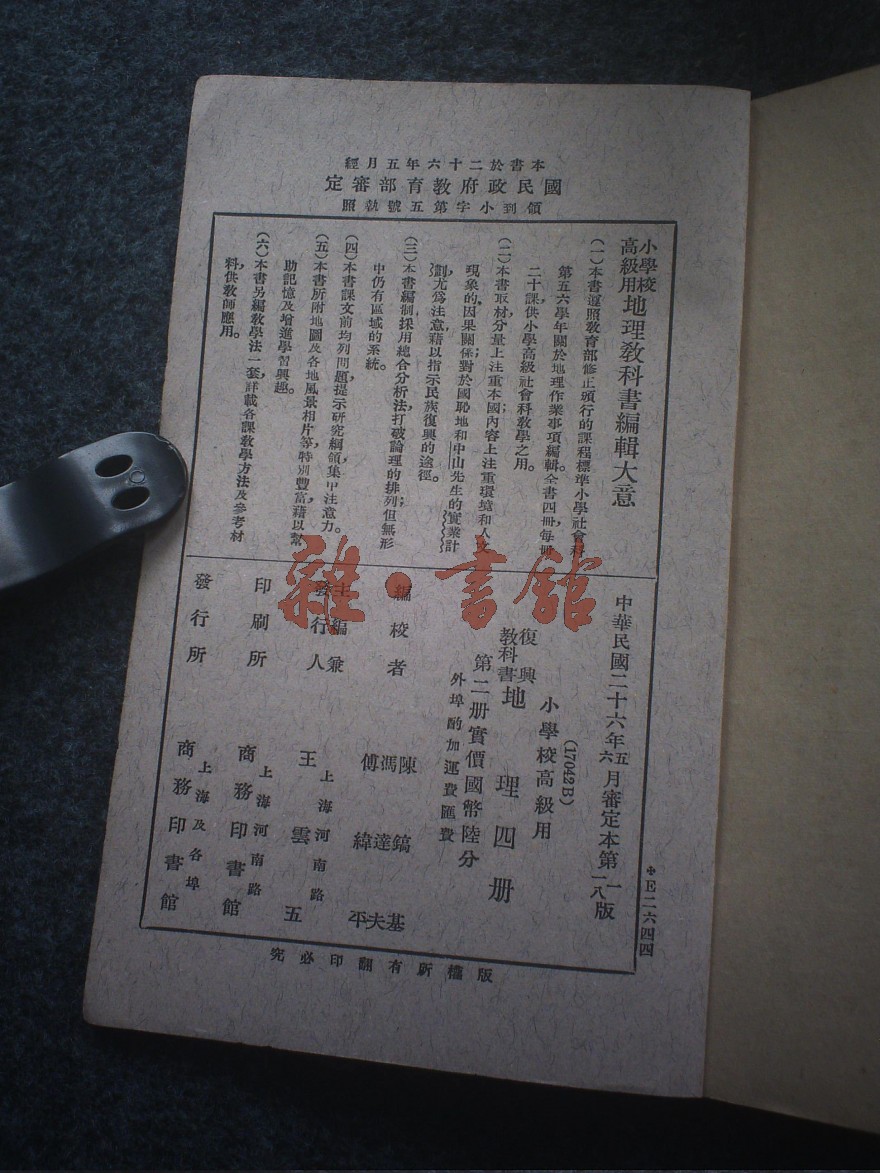 本書於二十六年五月經
國民政府教育部審定
領到小字第五號執照
小學校高級用地理教科書編輯大意
(一)本書遵照教育部修正頒行的課程標準小學社會科
第五六學年關於地理作業事項編輯。全書四冊,每冊
二十課,供小學高級社會科教學之用。
(二)本書取材,分量上注重本國;內容上注重環境和人文
現象的因果關係;對於國恥地和中山先生的實業計
劃,尤爲注意,藉以指示民族復興的途徑。
(三)本書編制採用總合分析法,打破論理的排列;但無形
中仍有區域的系統。
(四)本書課文前均列問題,提示研究綱領,集中注意力。
(五)本書所附地圖及各地風景相片等,特別豐富,藉以幫
助記憶及增進學習興趣。
(六)本書另編教學法一套,詳載各課教學方法及參考材
料,供教師應用。
中華民國二十六年五六月審定本第一一八版
(17042B)
小學校高級用
復興教科書地理四册
第二册實價國幣陸分
外埠酌加運費匯費
編校者
陳鎬基
馮達夫
傅緯平
主編兼發行人
上海河南路
王雲五
印刷所
上海河南路
商務印書館
發行所
上海及各埠
商務印書館
版權所有翻印必究
E二六四四
雜·書館